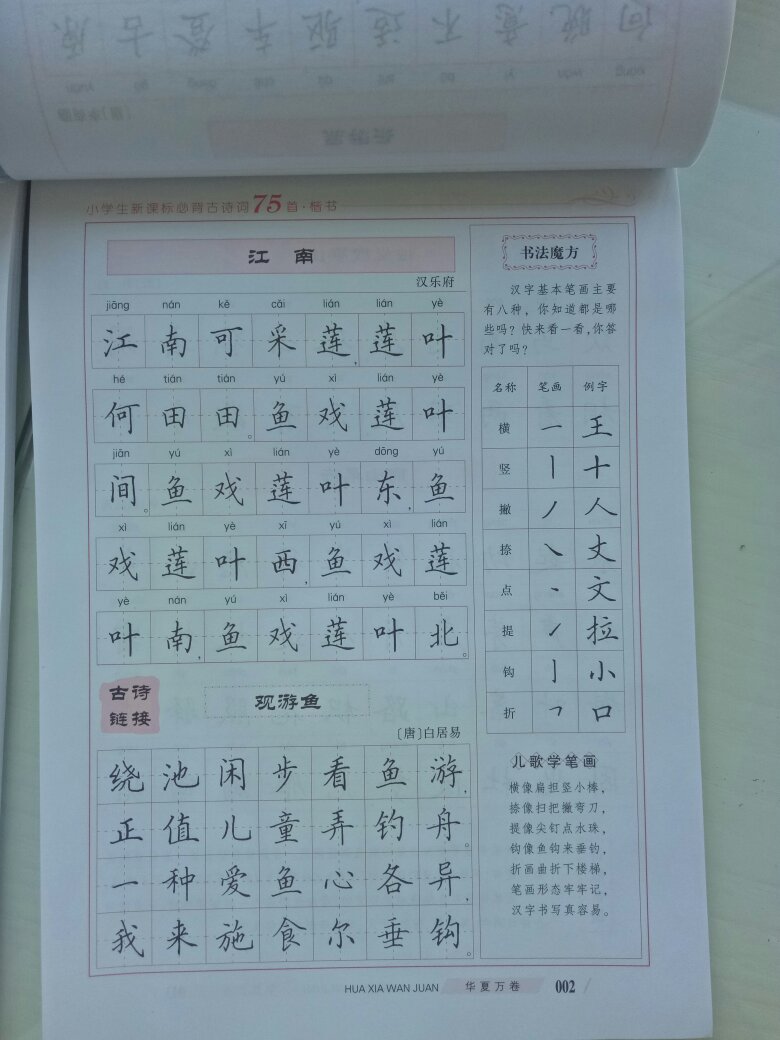 小学生新课标必背古诗词75首·楷书
江南
汉乐府
jiāng nán kě cǎi lián lián yè
江南可采莲，莲叶
hé tián tián yú xì lián yè
何田田。鱼戏莲叶
jiān yú xì lián yè dōng yú
间。鱼戏莲叶东，鱼
xì lián yè xī yú xì lián
戏莲叶西，鱼戏莲
yè nán yú xì lián yè běi
叶南，鱼戏莲叶北。
古诗
链接
观游鱼
〔唐〕白居易
绕池闲步看鱼游，
正值儿童弄钓舟。
一种爱鱼心各异，
我来施食尔垂钩。
书法魔方
汉字基本笔画主要
有八种，你知道都是哪
些吗？快来看一看，你答
对了吗？
名称 笔画 例字
横 一 王
竖 丨 十
撇 丿 人
捺 ㇏ 丈
点 丶 文
提 ㇀ 拉
钩 亅 小
折 ㇕ 口
儿歌学笔画
横像扁担竖小棒，
捺像扫把撇弯刀，
提像尖钉点水珠，
钩像鱼钩来垂钓，
折画曲折下楼梯，
笔画形态牢牢记，
汉字书写真容易。
HUA XIA WAN JUAN 华夏万卷 002